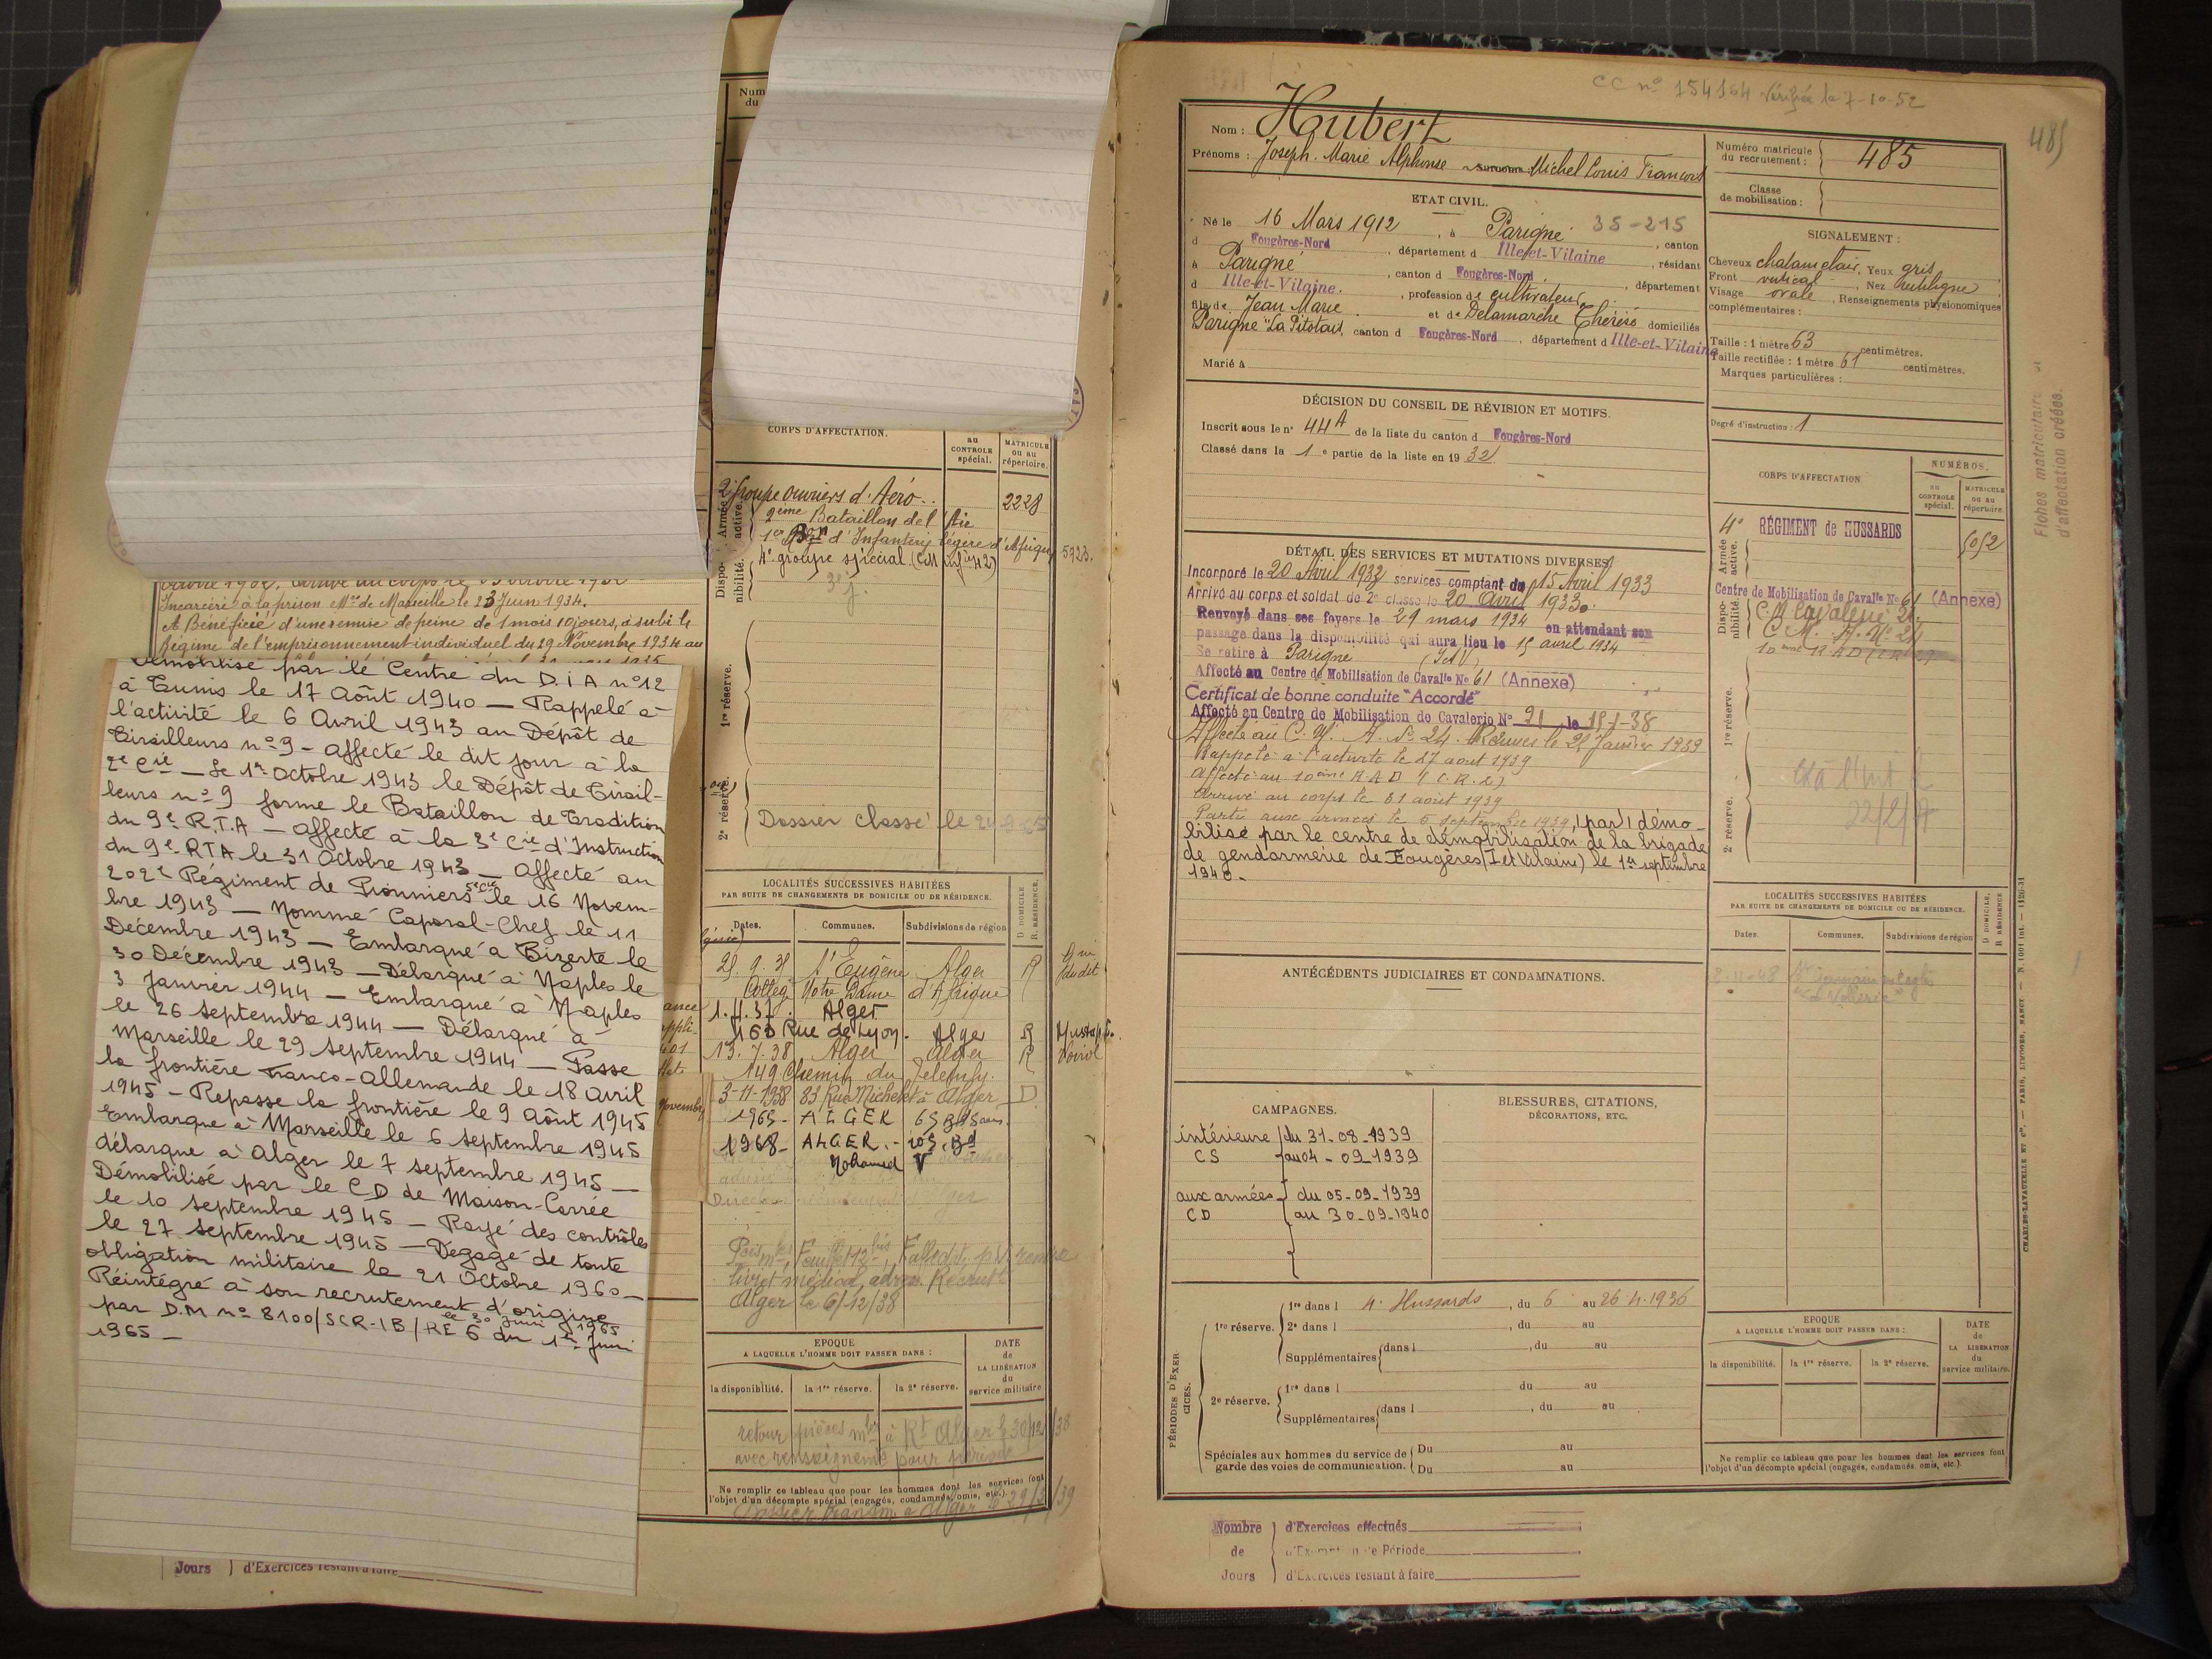 octobre 1932, arrivé au corps le
Incarcéré à la prison Mre de Marseille le 23 Juin 1934.
A Bénéficié d'une remise de peine de 1 mois 10 jours, a subi le
régime de l'emprisonnement individuel du 29 Novembre 1934 au
Démobilisé par le Centre du D.I.A n° 12
à Tunis le 17 Août 1940 — Rappelé à
l'activité le 6 Avril 1943 au Dépôt de
Tirailleurs n° 9 - affecté le dit jour à la
2e Cie — Le 1er Octobre 1943 le Dépôt de Tirail-
leurs n° 9 forme le Bataillon de Tradition
du 9e R.T.A — affecté à la 3e Cie d'Instruction
du 9e RTA le 31 Octobre 1943 — affecté au
202e Régiment de Pionniers 5e Cie le 16 Novem-
bre 1943 — Nommé Caporal-Chef le 11
Décembre 1943 — Embarqué à Bizerte le
30 Décembre 1943 — Débarqué à Naples le
3 Janvier 1944 — Embarqué à Naples
le 26 septembre 1944 — Débarqué à
Marseille le 29 septembre 1944 — Passe
la frontière Franco-allemande le 18 avril
1945 — Repasse la frontière le 9 Août 1945
Embarque à Marseille le 6 septembre 1945
débarque à Alger le 7 septembre 1945 —
Démobilisé par le CD de Maison-Carrée
le 10 septembre 1945 — Rayé des contrôles
le 27 septembre 1945 — Dégagé de toute
obligation militaire le 21 Octobre 1960 —
Réintégré à son recrutement d'origine
le 30 Juin 1965
par D.M n° 8100/SCR-1B/RE 6 du 1er Juin
1965 —
Jours d'Exercices restant à faire
Num
du
CORPS D'AFFECTATION.
au CONTROLE spécial.
MATRICULE ou au répertoire.
Armée active.
2e groupe ouvriers d'Aéro.. 2228
2ème Bataillon de l'
1er Bon d'Infanterie légère d'Afrique 5923.
Disponibilité.
4e groupe spécial
1re réserve.
2e réserve.
Dossier classé le
LOCALITÉS SUCCESSIVES HABITÉES
PAR SUITE DE CHANGEMENTS DE DOMICILE OU DE RÉSIDENCE.
D DOMICILE. R RÉSIDENCE.
Dates. Communes. Subdivisions de région
St Eugène Alger R
Notre Dame d'Afrique
1.4.37. Alger
160 Rue de Lyon. Alger R
13.7.38 Alger Alger R
149 Chemin du Telemly.
3-11-1938 83 Rue Michelet à Alger D
1965- ALGER 65
1968- ALGER. - 105. Bd
Mohamed V
livret médical, Recrutt
Alger le 6/12/38
EPOQUE
A LAQUELLE L'HOMME DOIT PASSER DANS :
DATE de LA LIBÉRATION du service militaire
la disponibilité. la 1re réserve. la 2e réserve.
retour pièces mles à Rt Alger le 30/12/38
avec renseignemts pour
Ne remplir ce tableau que pour les hommes dont les services font
l'objet d'un décompte spécial (engagés, condamnés, omis, etc.).
Dossier transm. à Alger le 29/3/39
CC n° 154164 Vérifié le 7-10-52
485
Nom : Houbert
Prénoms : Joseph. Marie Alphonse Surnoms : Michel Louis François
Numéro matricule du recrutement : 485
Classe de mobilisation :
ETAT CIVIL.
Né le 16 Mars 1912, à Parigné 35-215, canton
d Fougères-Nord, département d Ille-et-Vilaine, résidant
à Parigné, canton d Fougères-Nord, département
d Ille-et-Vilaine., profession de cultivateur
fils de Jean Marie et de Delamarche Thérèse domiciliés
Parigné, canton d Fougères-Nord, département d Ille-et-Vilaine
Marié à
SIGNALEMENT :
Cheveux chatain clair, Yeux gris
Front vertical, Nez rectiligne
Visage ovale, Renseignements physionomiques
complémentaires :
Taille : 1 mètre 63 centimètres.
Taille rectifiée : 1 mètre 61 centimètres.
Marques particulières :
Degré d'instruction : 1
DÉCISION DU CONSEIL DE RÉVISION ET MOTIFS.
Inscrit sous le n° 44A de la liste du canton d Fougères-Nord
Classé dans la 1e partie de la liste en 1932.
DÉTAIL DES SERVICES ET MUTATIONS DIVERSES.
Incorporé le 20 Avril 1933 services comptant du 15 Avril 1933
Arrivé au corps et soldat de 2e classe le 20 Avril 1933.
Renvoyé dans ses foyers le 29 mars 1934 en attendant son
passage dans la disponibilité qui aura lieu le 15 avril 1934
Se retire à Parigné (I&V)
Affecté au Centre de Mobilisation de Cavalie No 61 (Annexe)
Certificat de bonne conduite "Accordé"
Affecté au Centre de Mobilisation de Cavalerie N° 21 le
Affecté au C. M. A. No 24. Rennes le 25 Janvier 1939
Rappelé à l'activité le 27 aout 1939
affecté au 10ème R A D (C.R.2)
Arrivé au corps le 31 août 1939
Parti aux armées le 5 septembre 1939, (par) démo-
bilisé par le centre de démobilisation de la brigade
de gendarmerie de Fougères (I et Vilaine) le 1er septembre
1940-
CORPS D'AFFECTATION
NUMÉROS.
au CONTROLE spécial.
MATRICULE ou au répertoire.
Armée active.
4e RÉGIMENT de HUSSARDS
Disponibilité.
Centre de Mobilisation de Cavalie No 61 (Annexe)
C. M Cavalerie 21.
C. M. A. No 24
10ème R A D (C R 2)
1re réserve.
2e réserve.
Fiches matriculaire et
d'affectation créées.
ANTÉCÉDENTS JUDICIAIRES ET CONDAMNATIONS.
LOCALITÉS SUCCESSIVES HABITÉES
PAR SUITE DE CHANGEMENTS DE DOMICILE OU DE RÉSIDENCE.
D DOMICILE. R RÉSIDENCE
Dates. Communes. Subdivisions de région
CAMPAGNES.
intérieure du 31-08-1939
CS au 04-09-1939
aux armées du 05-09-1939
CD au 30-09-1940
BLESSURES, CITATIONS,
DÉCORATIONS, ETC.
PÉRIODES D'EXERCICES.
1re réserve.
1re dans l 4e Hussards, du 6 au 26.4.1936
2e dans l, du au
Supplémentaires dans l, du au
2e réserve.
1re dans l du au
Supplémentaires dans l, du au
Spéciales aux hommes du service de
garde des voies de communication.
Du au
Du au
EPOQUE
A LAQUELLE L'HOMME DOIT PASSER DANS :
DATE de LA LIBÉRATION du service militaire.
la disponibilité. la 1re réserve. la 2e réserve.
Ne remplir ce tableau que pour les hommes dont les services font
l'objet d'un décompte spécial (engagés, condamnés, omis, etc.).
CHARLES-LAVAUZELLE ET Cie. — PARIS, LIMOGES, NANCY
Nombre d'Exercices effectués
de d'Exemption de Période
Jours d'Exercices restant à faire